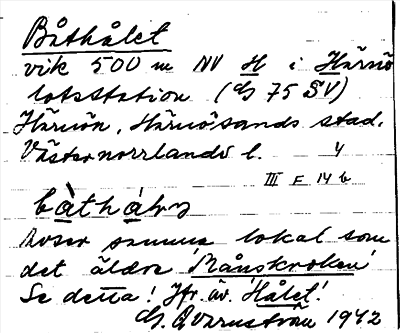 Båthålet
vik 500 m NV H i Härnö
lotsstation (G 75 SV)
Härnön, Härnösands stad.
Västernorrlands l. 4
III E 14 b
bàthálǝ
Avser samma lokal som
det äldre 'Månskroken'
Se detta! Jfr. äv. 'Hålet'!
G. Qvarnström 1942